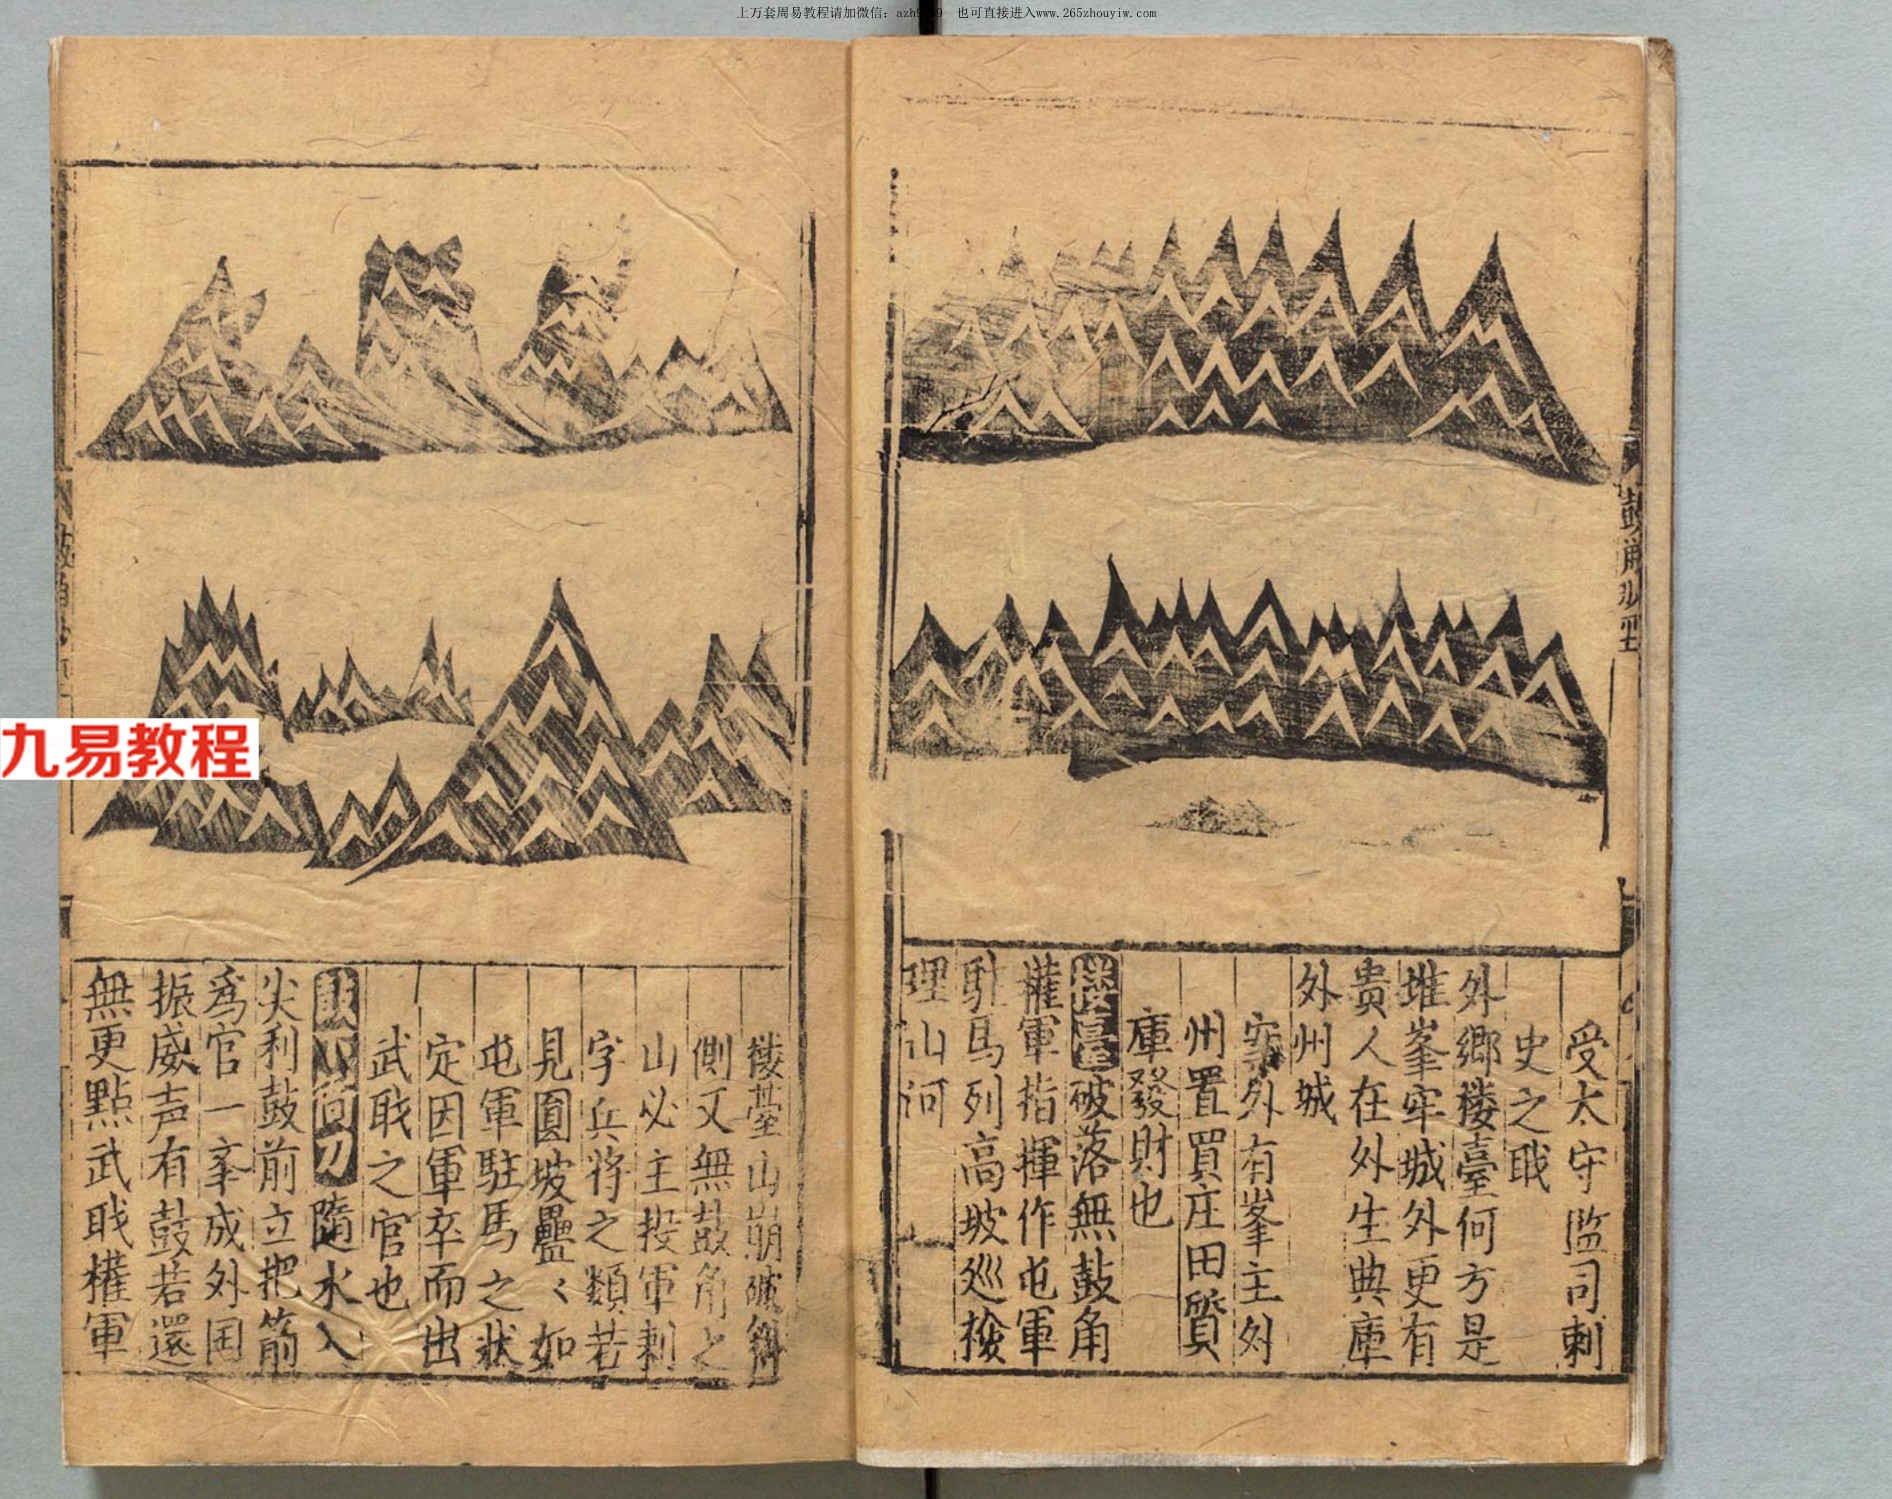 上万套周易教程请加微信: 也可直接进入www.265zhouyiw.com
受太守監司刺
史之戝
外鄉楼臺何方是
堆峯牢城外更有
贵人在外生典庫
外州城
外有峯主外
州置買庄田質
庫發財也
破落無鼓角
權軍指揮作屯軍
駐馬列高坡廵撿
理山河
楼臺山崩破
側又無鼓角之
山必主投軍刺
字兵将之類若
見圓坡壘〻如
屯軍駐馬之狀
定因軍卒而出
武戝之官也
隨水入
尖利鼓前立把箭
為官一峯成外国
振威声有鼓若還
無更點武戝權軍
九易教程